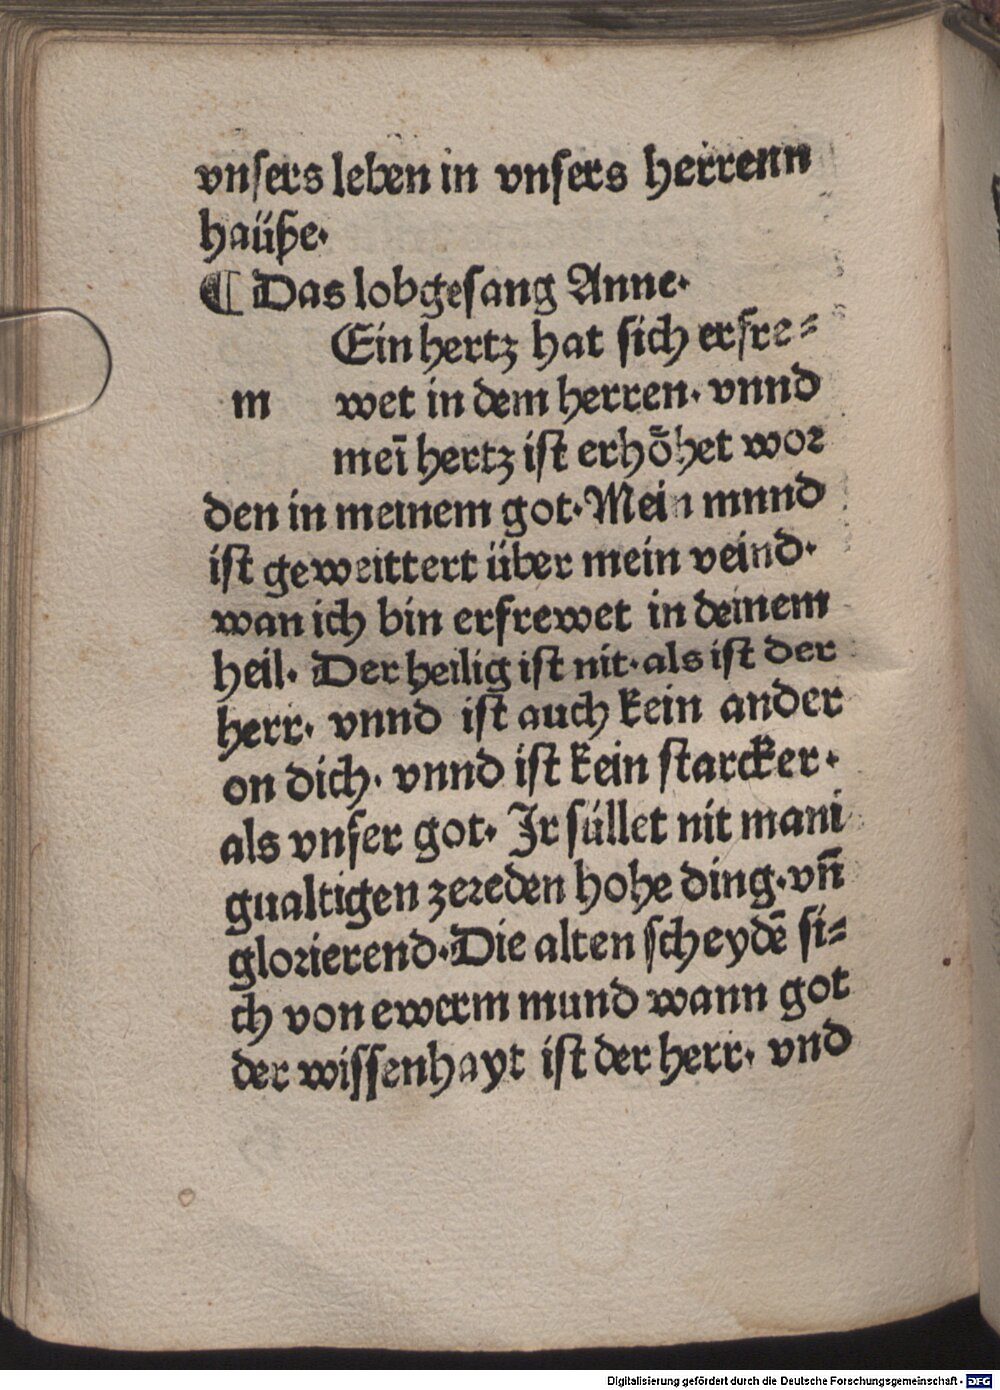 vnsers leben in vnsers herrenn
haüße·
¶ Das lobgesang Anne·
Ein hertz hat sich erfre⸗
m wet in dem herren· vnnd
meī hertz ist erhȫhet wor
den in meinem got· Mein mnnd
ist geweittert über mein veind·
wan ich bin erfrewet in deinem
heil· Der heilig ist nit· als ist der
herr· vnnd ist auch kein ander
on dich· vnnd ist kein starcker·
als vnser got· Jr süllet nit mani
gualtigen zereden hohe ding· vn̄
glorierend· Die alten scheydē si⸗
ch von ewerm mund wann got
der wissenhayt ist der herr· vnd
Digitalisierung gefördert durch die Deutsche Forschungsgemeinschaft - DFG